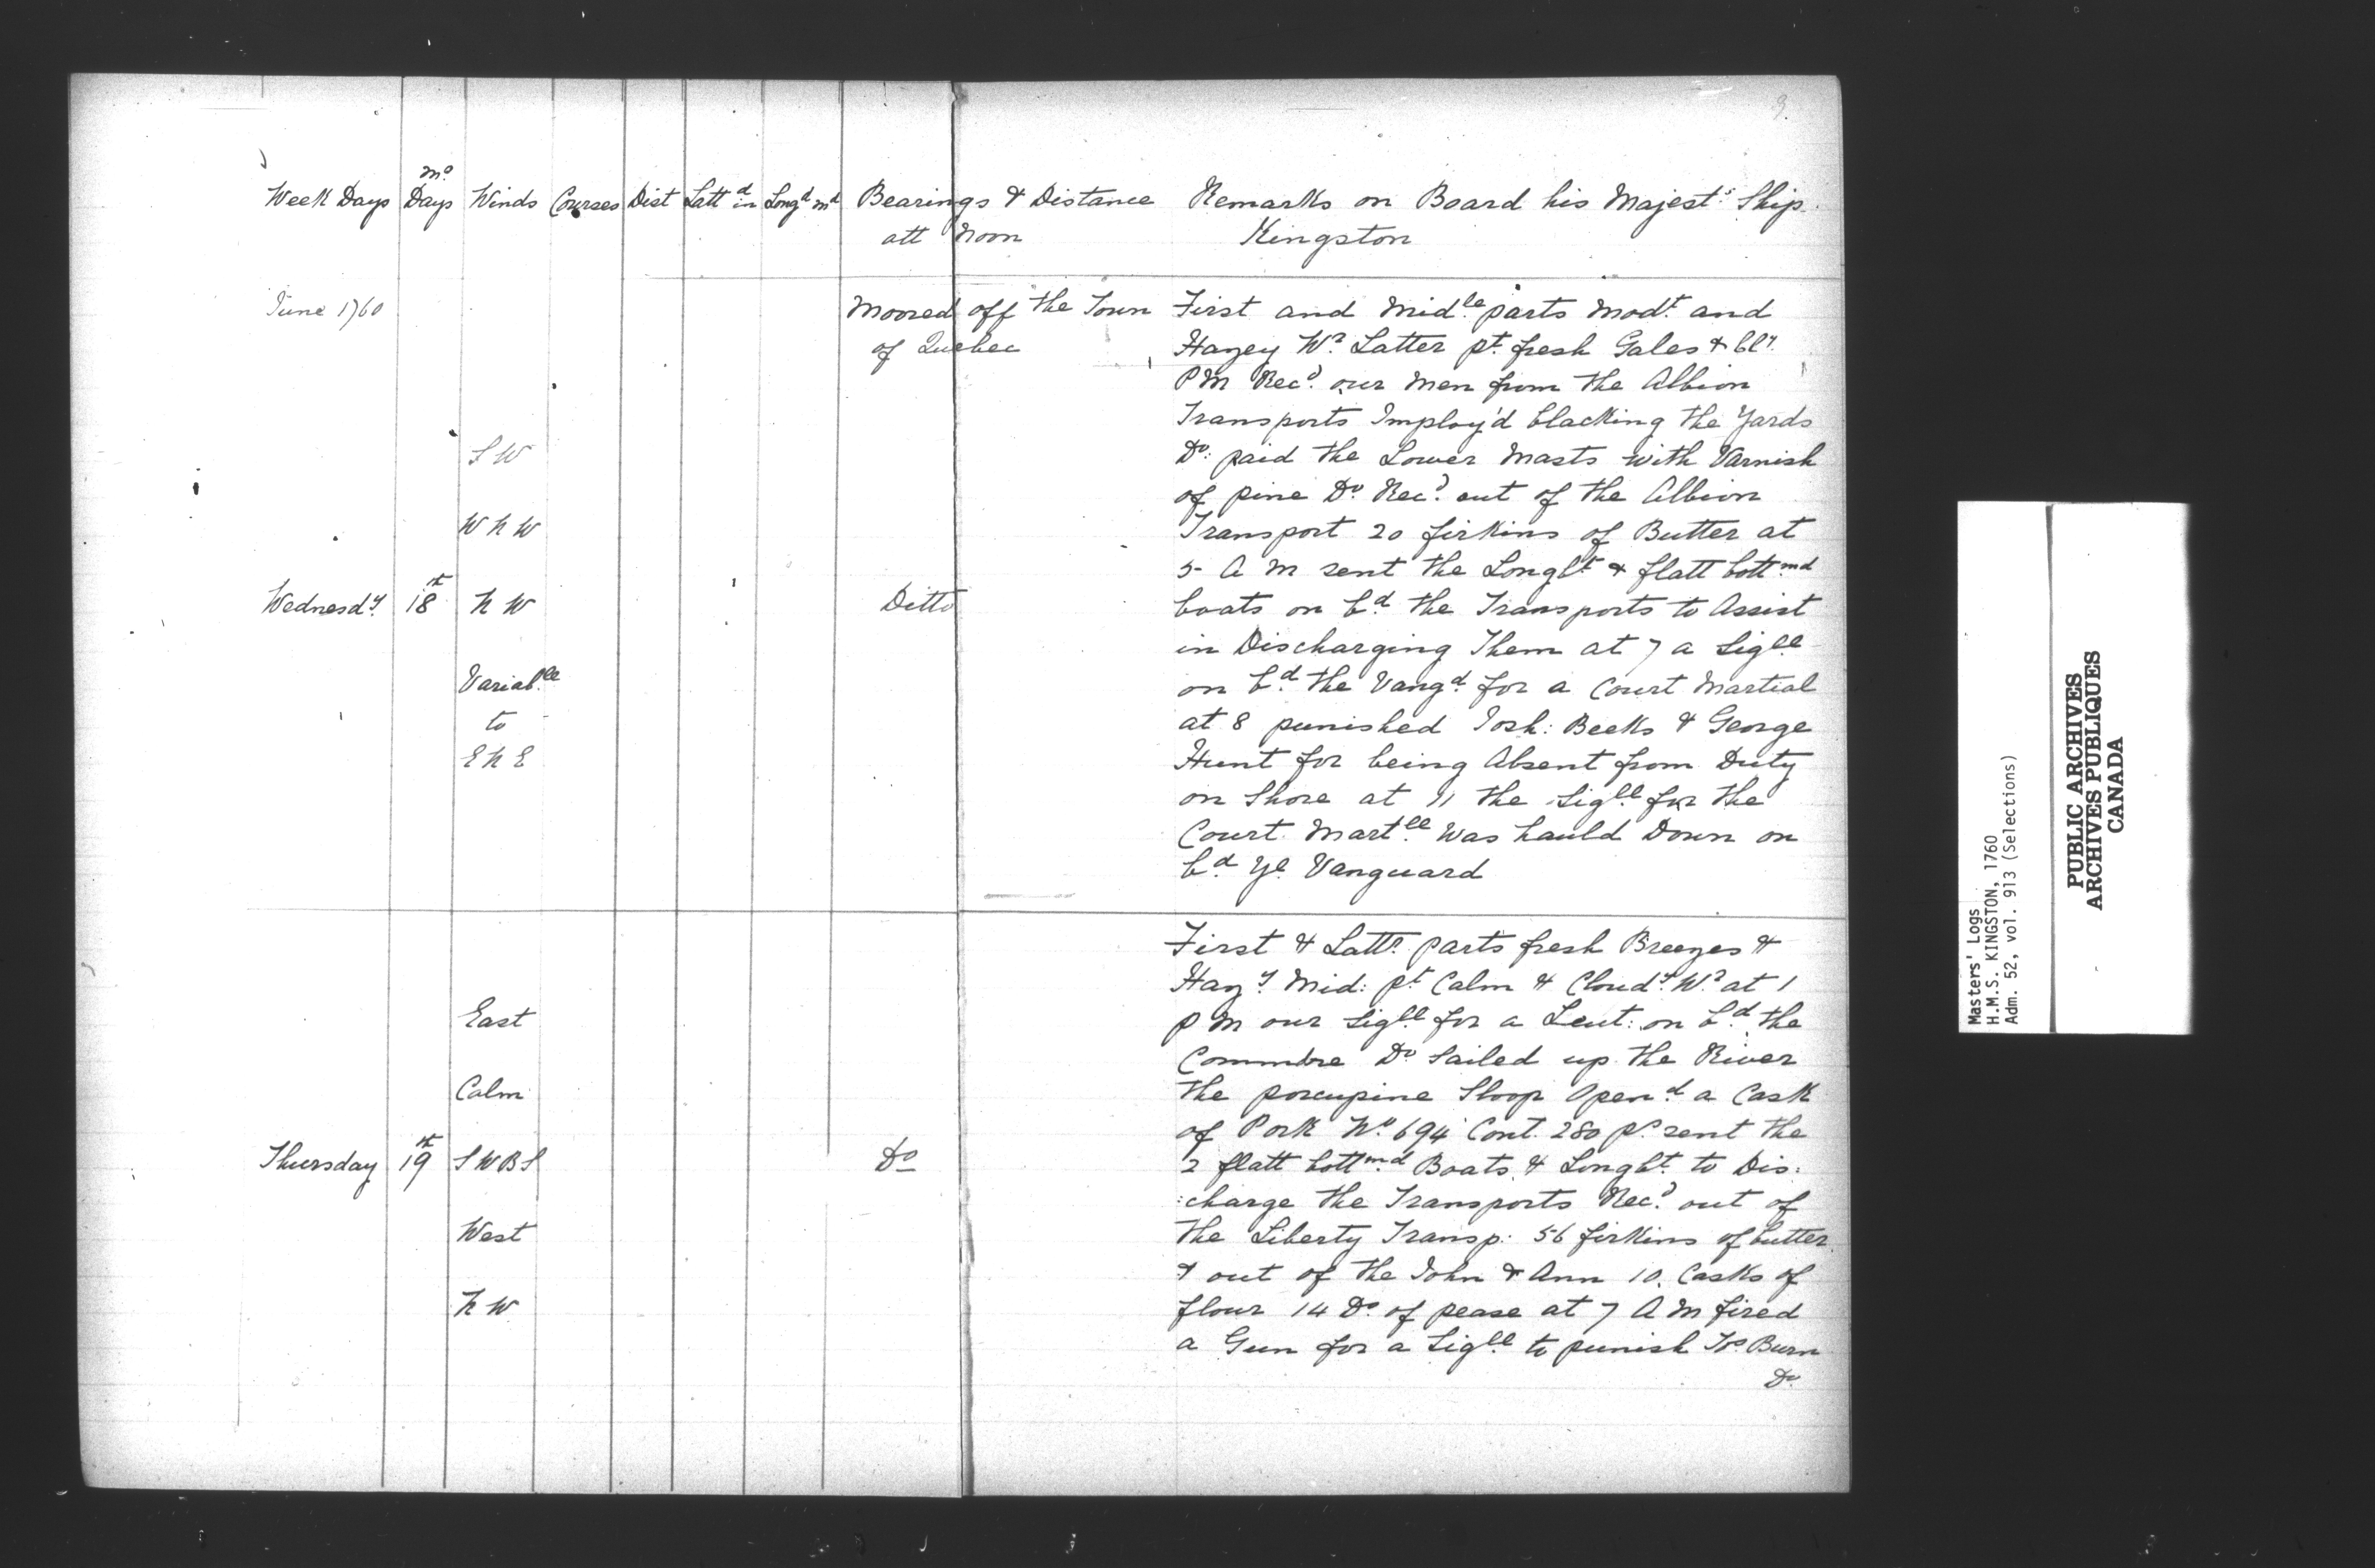 3.
Week Days mo Days Winds Courses Dist Lattd in Longd md Bearings & Distance att Noon Remarks on Board his Majests Ship
Kingston
June 1760
Moored off the Town
of Quebec
First and Midle parts Modt and
Hazey Wr Latter pt fresh Gales & Cly
PM Recd our Men from the Albion
Transports Imploy'd blacking the Yards
Do: paid the Lower Masts with Varnish
of pine Do Recd out of the Albion
Transport 20 firkins of Butter at
5 A M sent the Longbt & flatt bottmd
boats on bd the Transports to Assist
in Discharging Them at 7 a Sigll
on bd the Vangd for a Court Martial
at 8 punished Josh: Beeks & George
Hunt for being Absent from Duty
on Shore at 11 the Sigll for the
Court Martll Was hauld Down on
bd ye Vanguard
S W
W N W
Wednesdy 18th N W Ditto
Variable
to
E N E
First & Lattr parts fresh Breezes &
Hazy Mid: pt Calm & Cloudy Wr at 1
P M our Sigll for a Leut: on bd the
Commdre Do Sailed up the River
the porcupine Sloop Opend a Cask
of Pork No 694 Cont. 280 ps sent the
2 flatt bottmd Boats & Longbt to Dis:
:charge the Transports Recd out of
the Liberty Transp: 56 firkins of butter
& out of the John & Ann 10 Casks of
flour 14 Do of pease at 7 A M fired
a Gun for a Sigll to punish Burn
Do
East
Calm
Thursday 19th S W B S Do
West
N W
Masters' Logs
H.M.S. KINGSTON, 1760
Adm. 52, vol. 913 (Selections)
PUBLIC ARCHIVES
ARCHIVES PUBLIQUES
CANADA